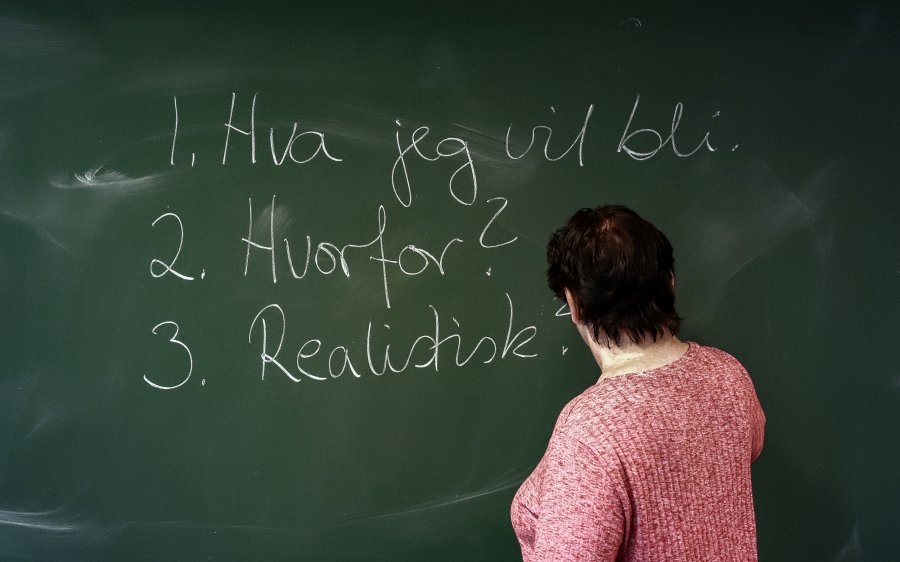 1. Hva jeg vil bli.
2. Hvorfor?
3. Realistisk?